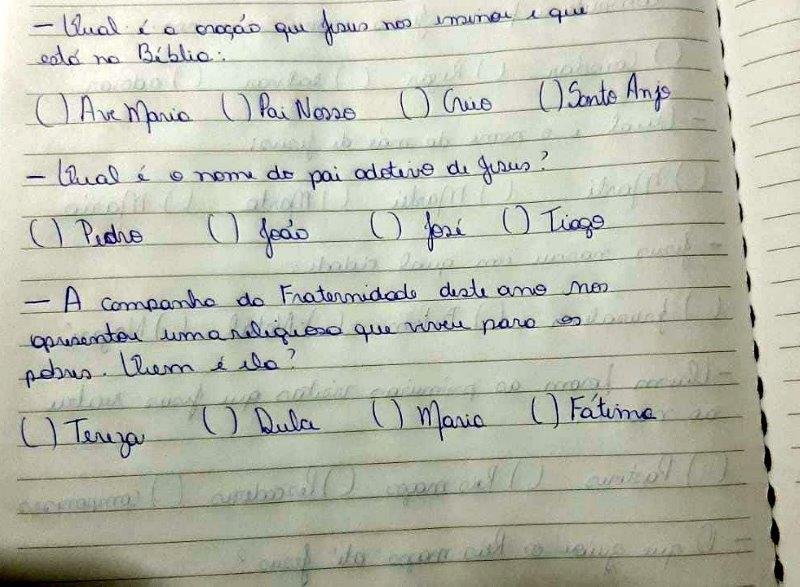 - Qual é a oração que Jesus nos ensinou e que
está na Bíblia:
( ) Ave Maria ( ) Pai Nosso ( ) Creio ( ) Santo Anjo
- Qual é o nome do pai adotivo de Jesus?
( ) Pedro ( ) João ( ) José ( ) Tiago
- A campanha da Fraternidade deste ano nos
apresentou uma religiosa que viveu para os
pobres. Quem é ela?
( ) Tereza ( ) Dula ( ) Maria ( ) Fátima